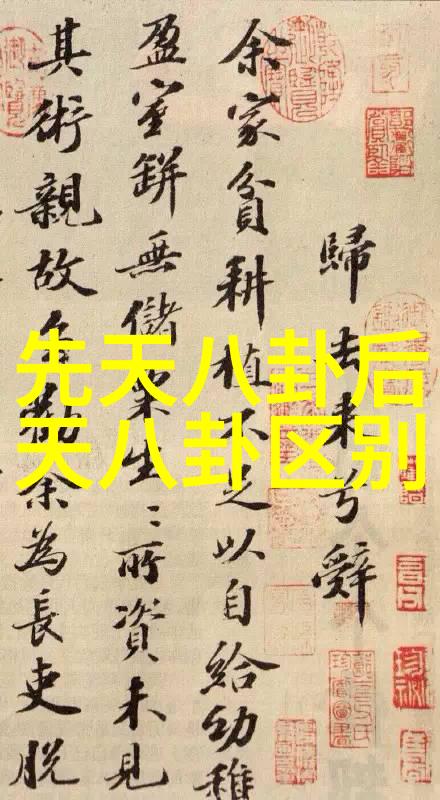 先天八卦后
天八卦区别
歸去来兮辭
余家貧耕植不足以自給幼稚
盈室缾無儲粟生〻所資未見
其術親故多勸余為長吏脱